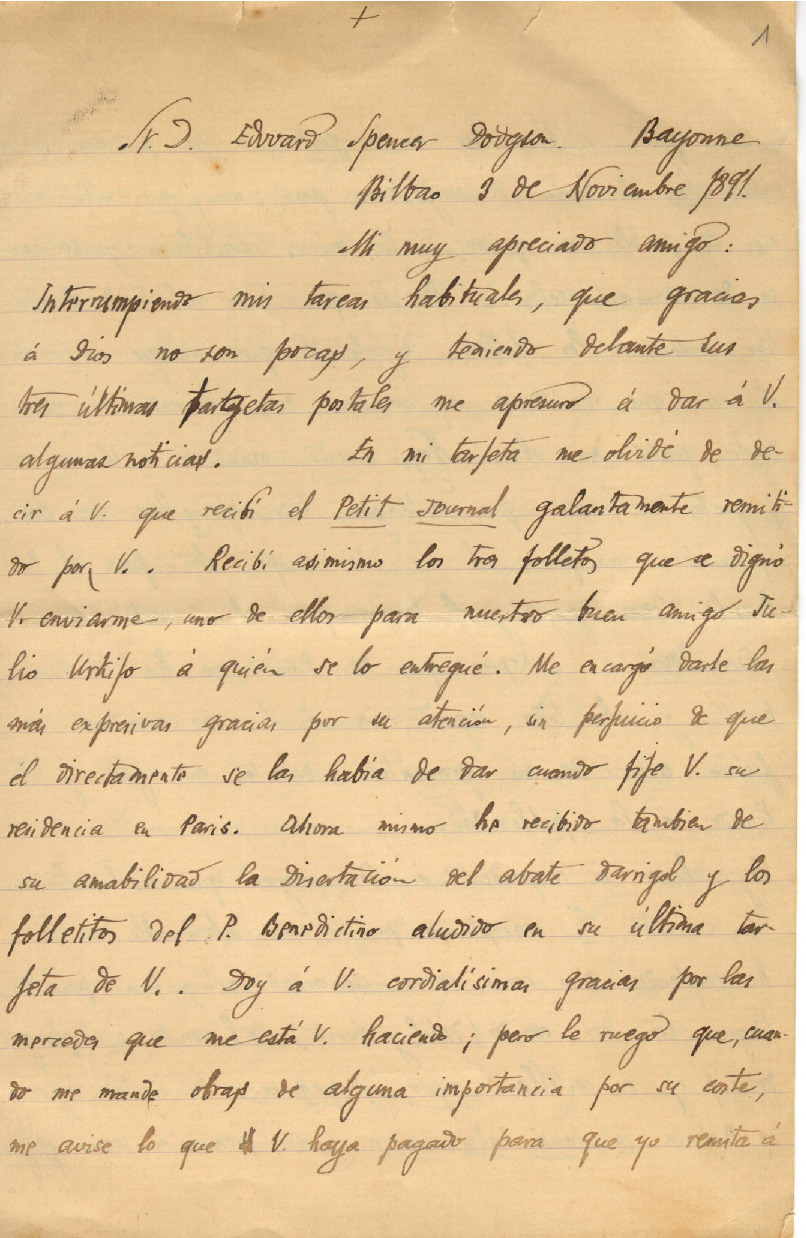 +
1
Sr. D. Edward Spencer Dodgson. Bayonne
Bilbao 3 de Noviembre 1891.
Mi muy apreciado amigo:
Interrumpiendo mis tareas habituales, que gracias
á Dios no son pocas, y teniendo delante sus
tres últimas tarjetas postales me apresuro á dar á V.
algunas noticias. En mi tarjeta me olvidé de de-
cir á V. que recibí el Petit Journal galantamente remiti-
do por V.. Recibí asimismo los tres folletos que se dignó
V. enviarme, uno de ellos para nuestro buen amigo Ju-
lio Urkijo á quién se lo entregué. Me encargó darle las
más expresivas gracias por su atención, sin perjuicio de que
él directamente se las había de dar cuando fije V. su
residencia en Paris. Ahora mismo he recibido tambien de
su amabilidad la Disertación del abate Darrigol y los
folletitos del P. Benedictino aludido en su última tar-
jeta de V.. Doy á V. cordialísimas gracias por las
mercedes que me está V. haciendo; pero le ruego que, cuan-
do me mande obras de alguna importancia por su coste,
me avise lo que V. haya pagado para que yo remita á